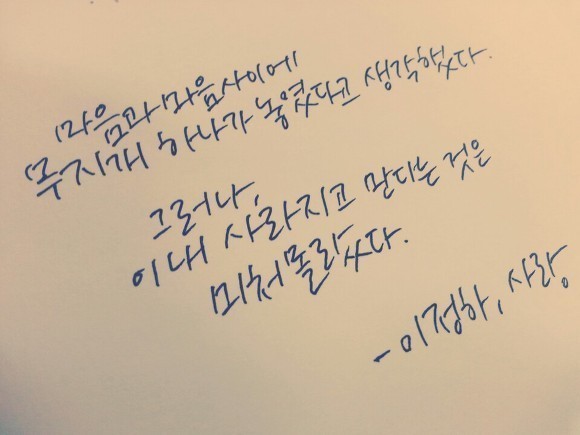 마음과 마음사이에
무지개 하나가 놓였다고 생각했다.
그러나,
이내 사라지고 만다는 것은
미처 몰랐다.
- 이정하, 사랑